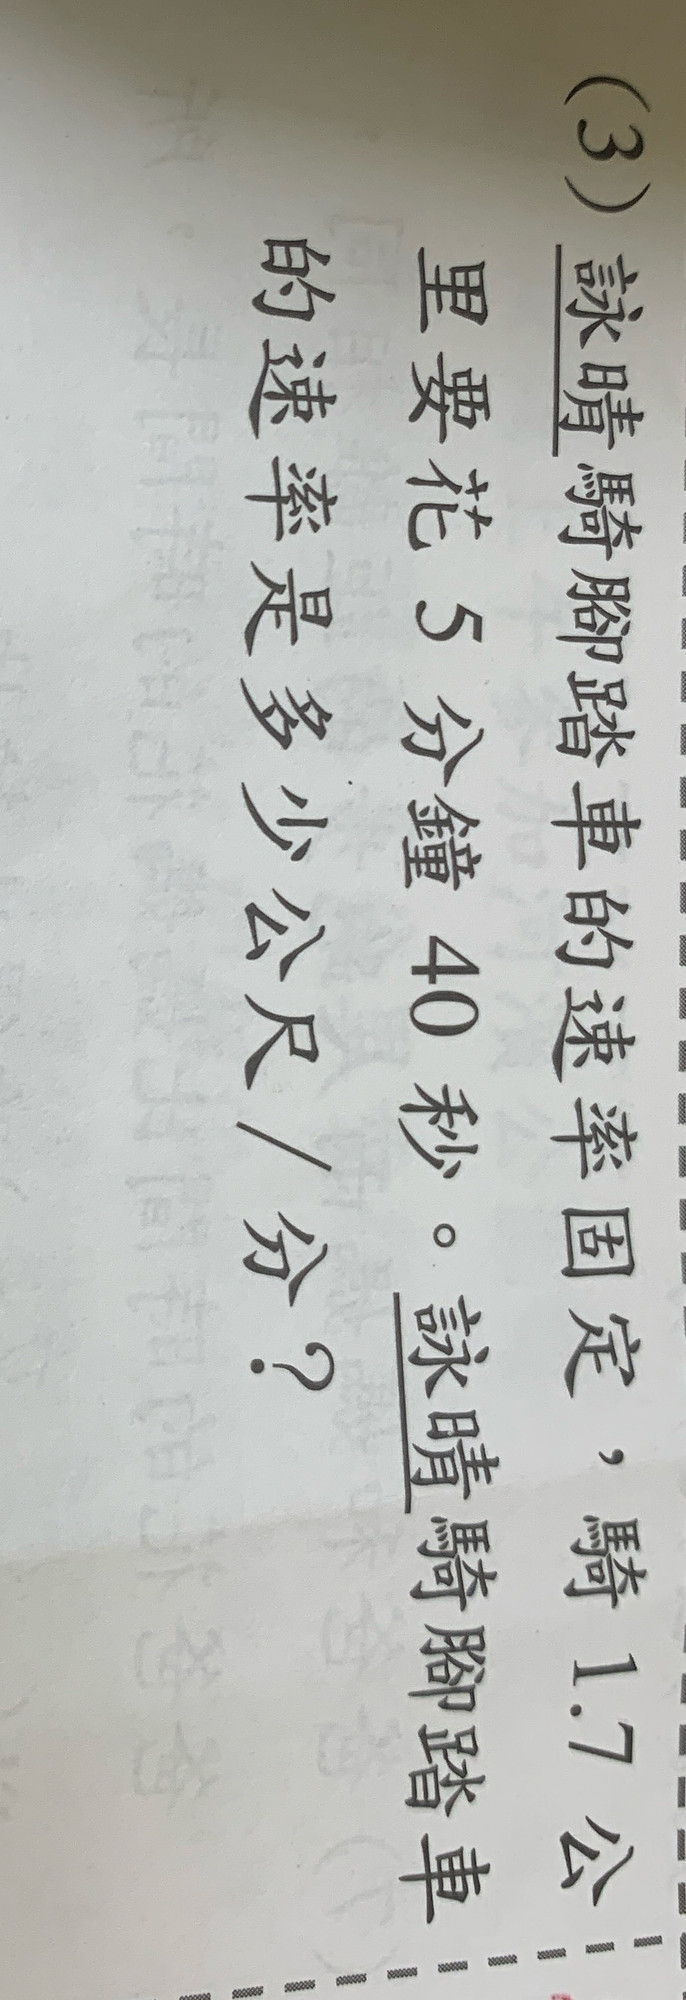 (3) 詠晴騎腳踏車的速率固定，騎 1.7 公
里要花 5 分鐘 40 秒。詠晴騎腳踏車
的速率是多少公尺/分？